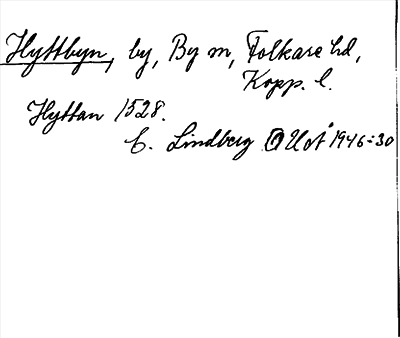 Hyttbyn, by, By sn, Folkare hd,
Kopp. l.
Hyttan 1528.
C. Lindberg OUoÅ 1946:30